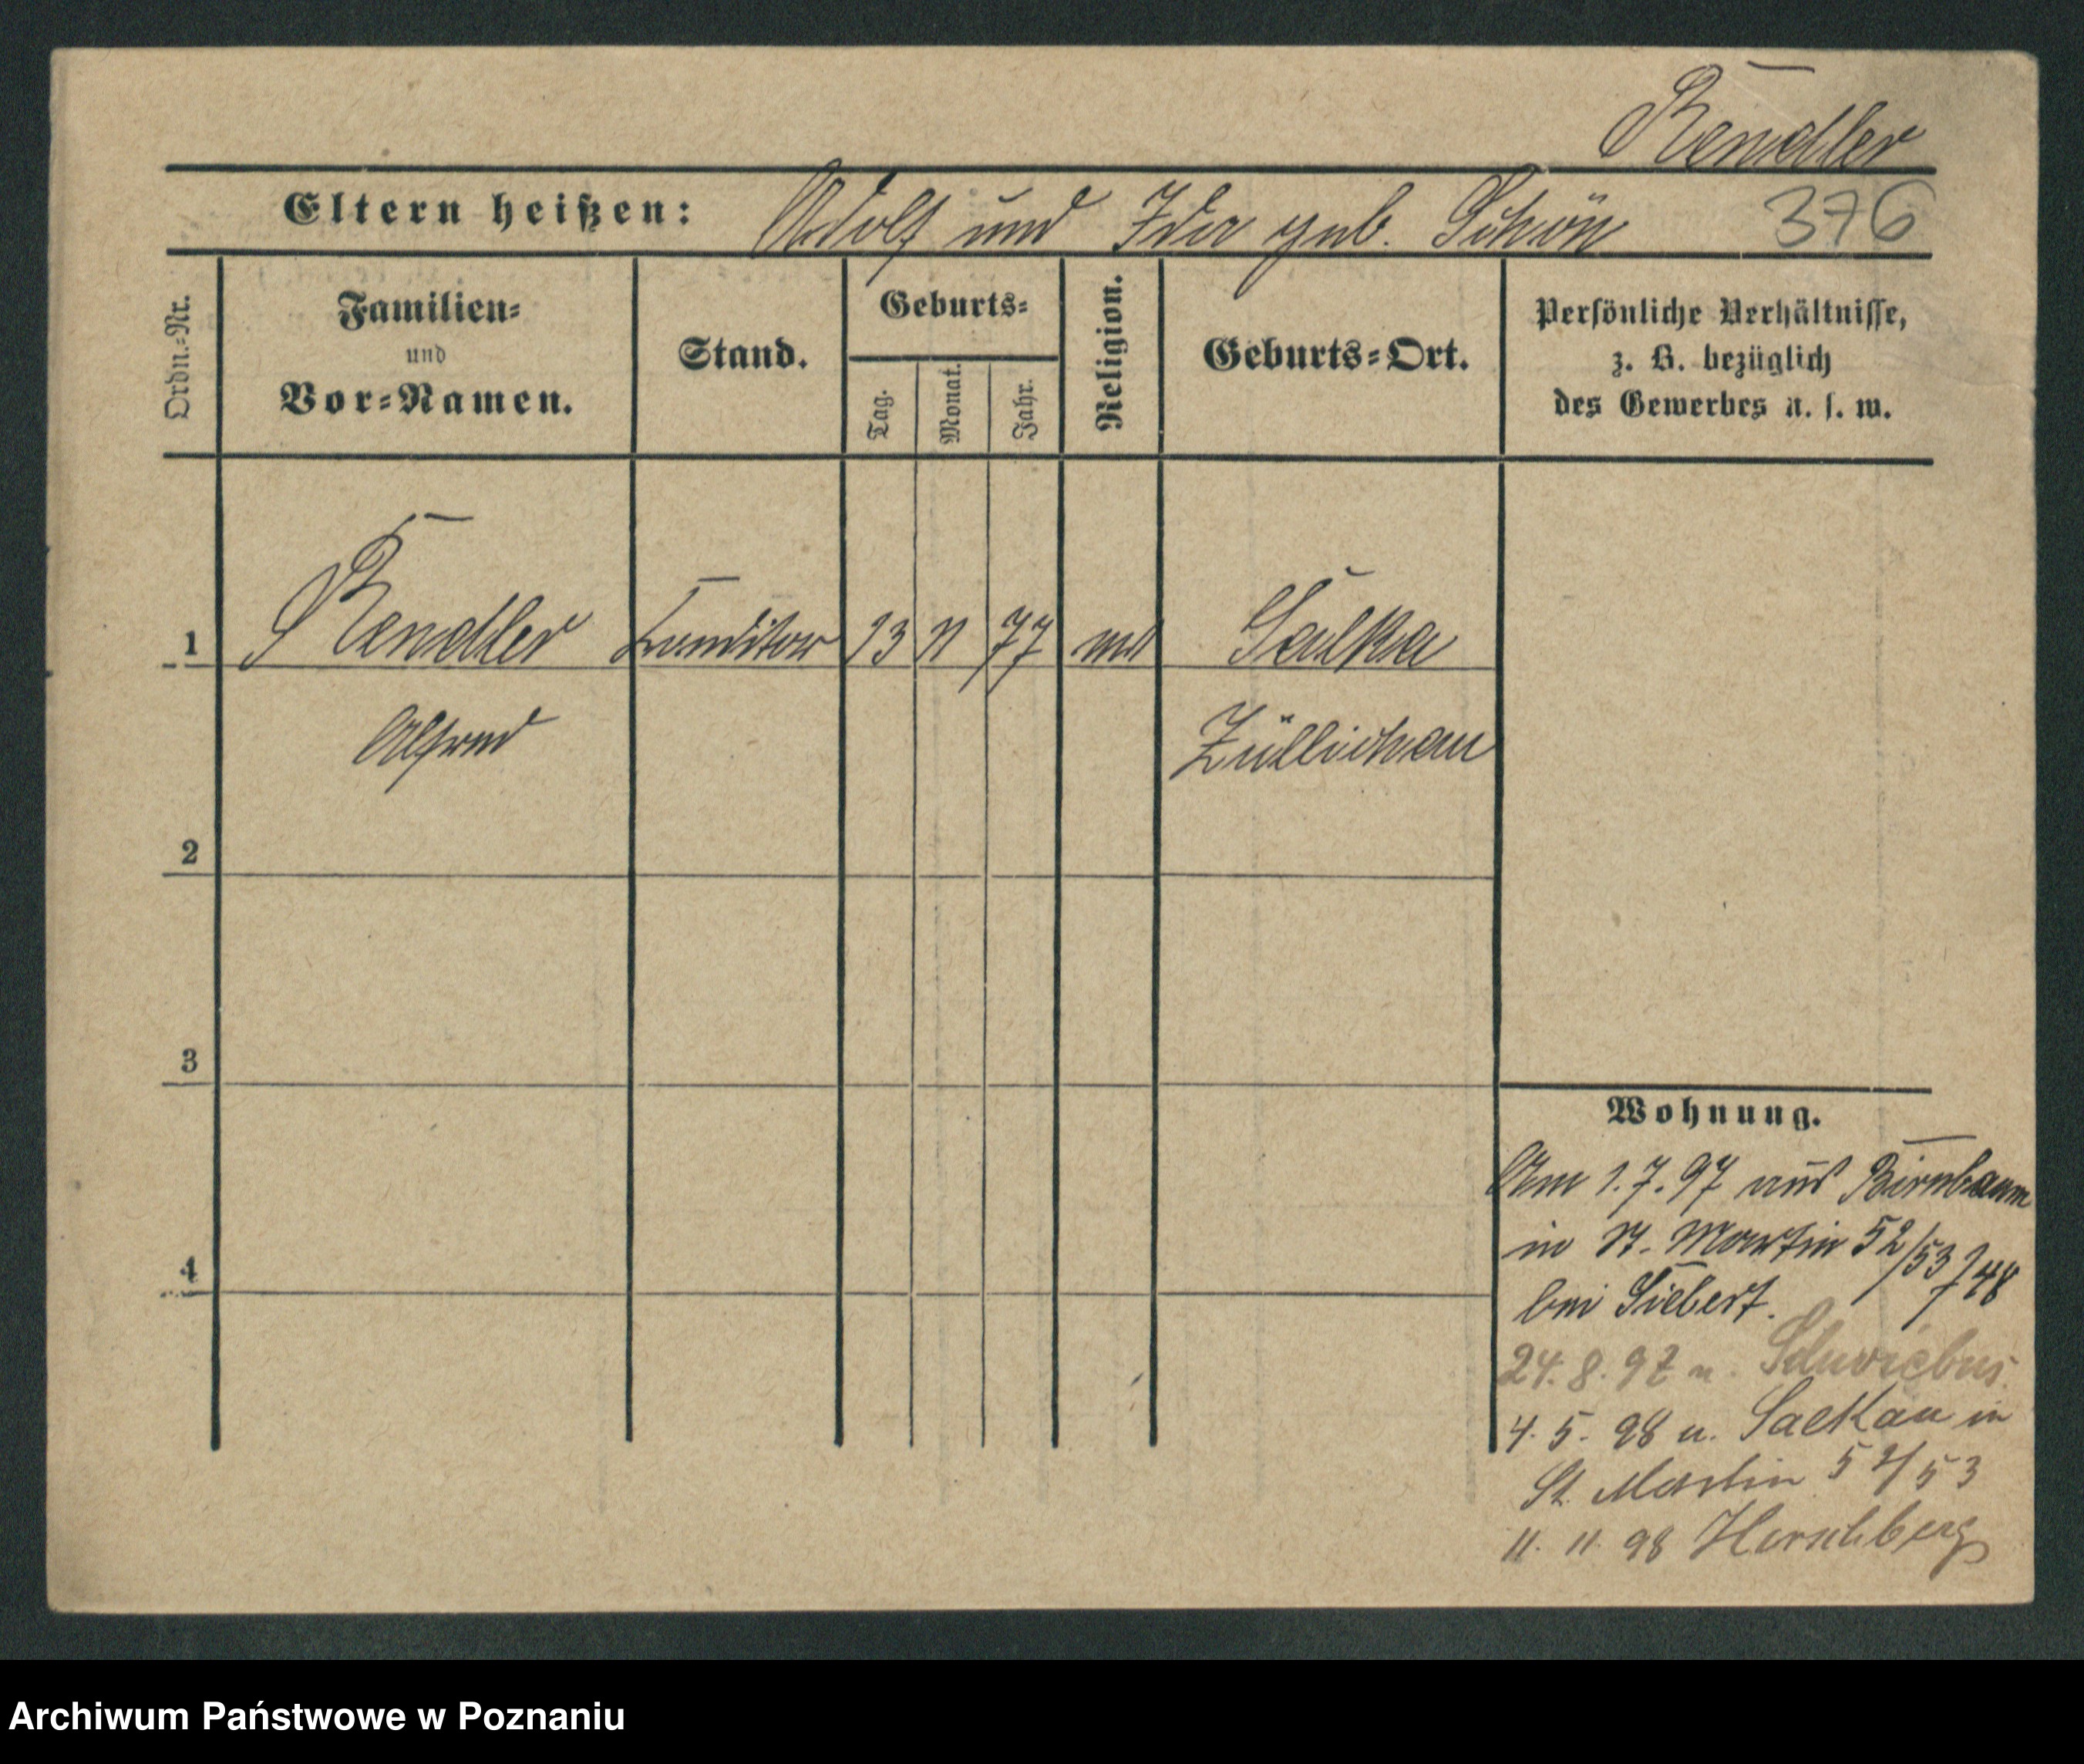 Rendler
Eltern heißen: Adolf und Ida geb. Schön 376
Ordn.-Nr.
Familien-
und
Vor-Namen.
Stand.
Geburts-
Tag.
Monat.
Jahr.
Religion.
Geburts-Ort.
Persönliche Verhältnisse,
z. B. bezüglich
des Gewerbes u. s. w.
1 Rendler Conditor 13 11 77
Alfred Züllichau
2
3
4
Wohnung.
Am 1.7.97 aus Birnbaum
in St. Martin 52/53
bei Siebert.
24.8.97 n. Schwiebus
4.5.98 in
St. Martin 52/53
11.11.98 Hirschberg
Archiwum Państwowe w Poznaniu